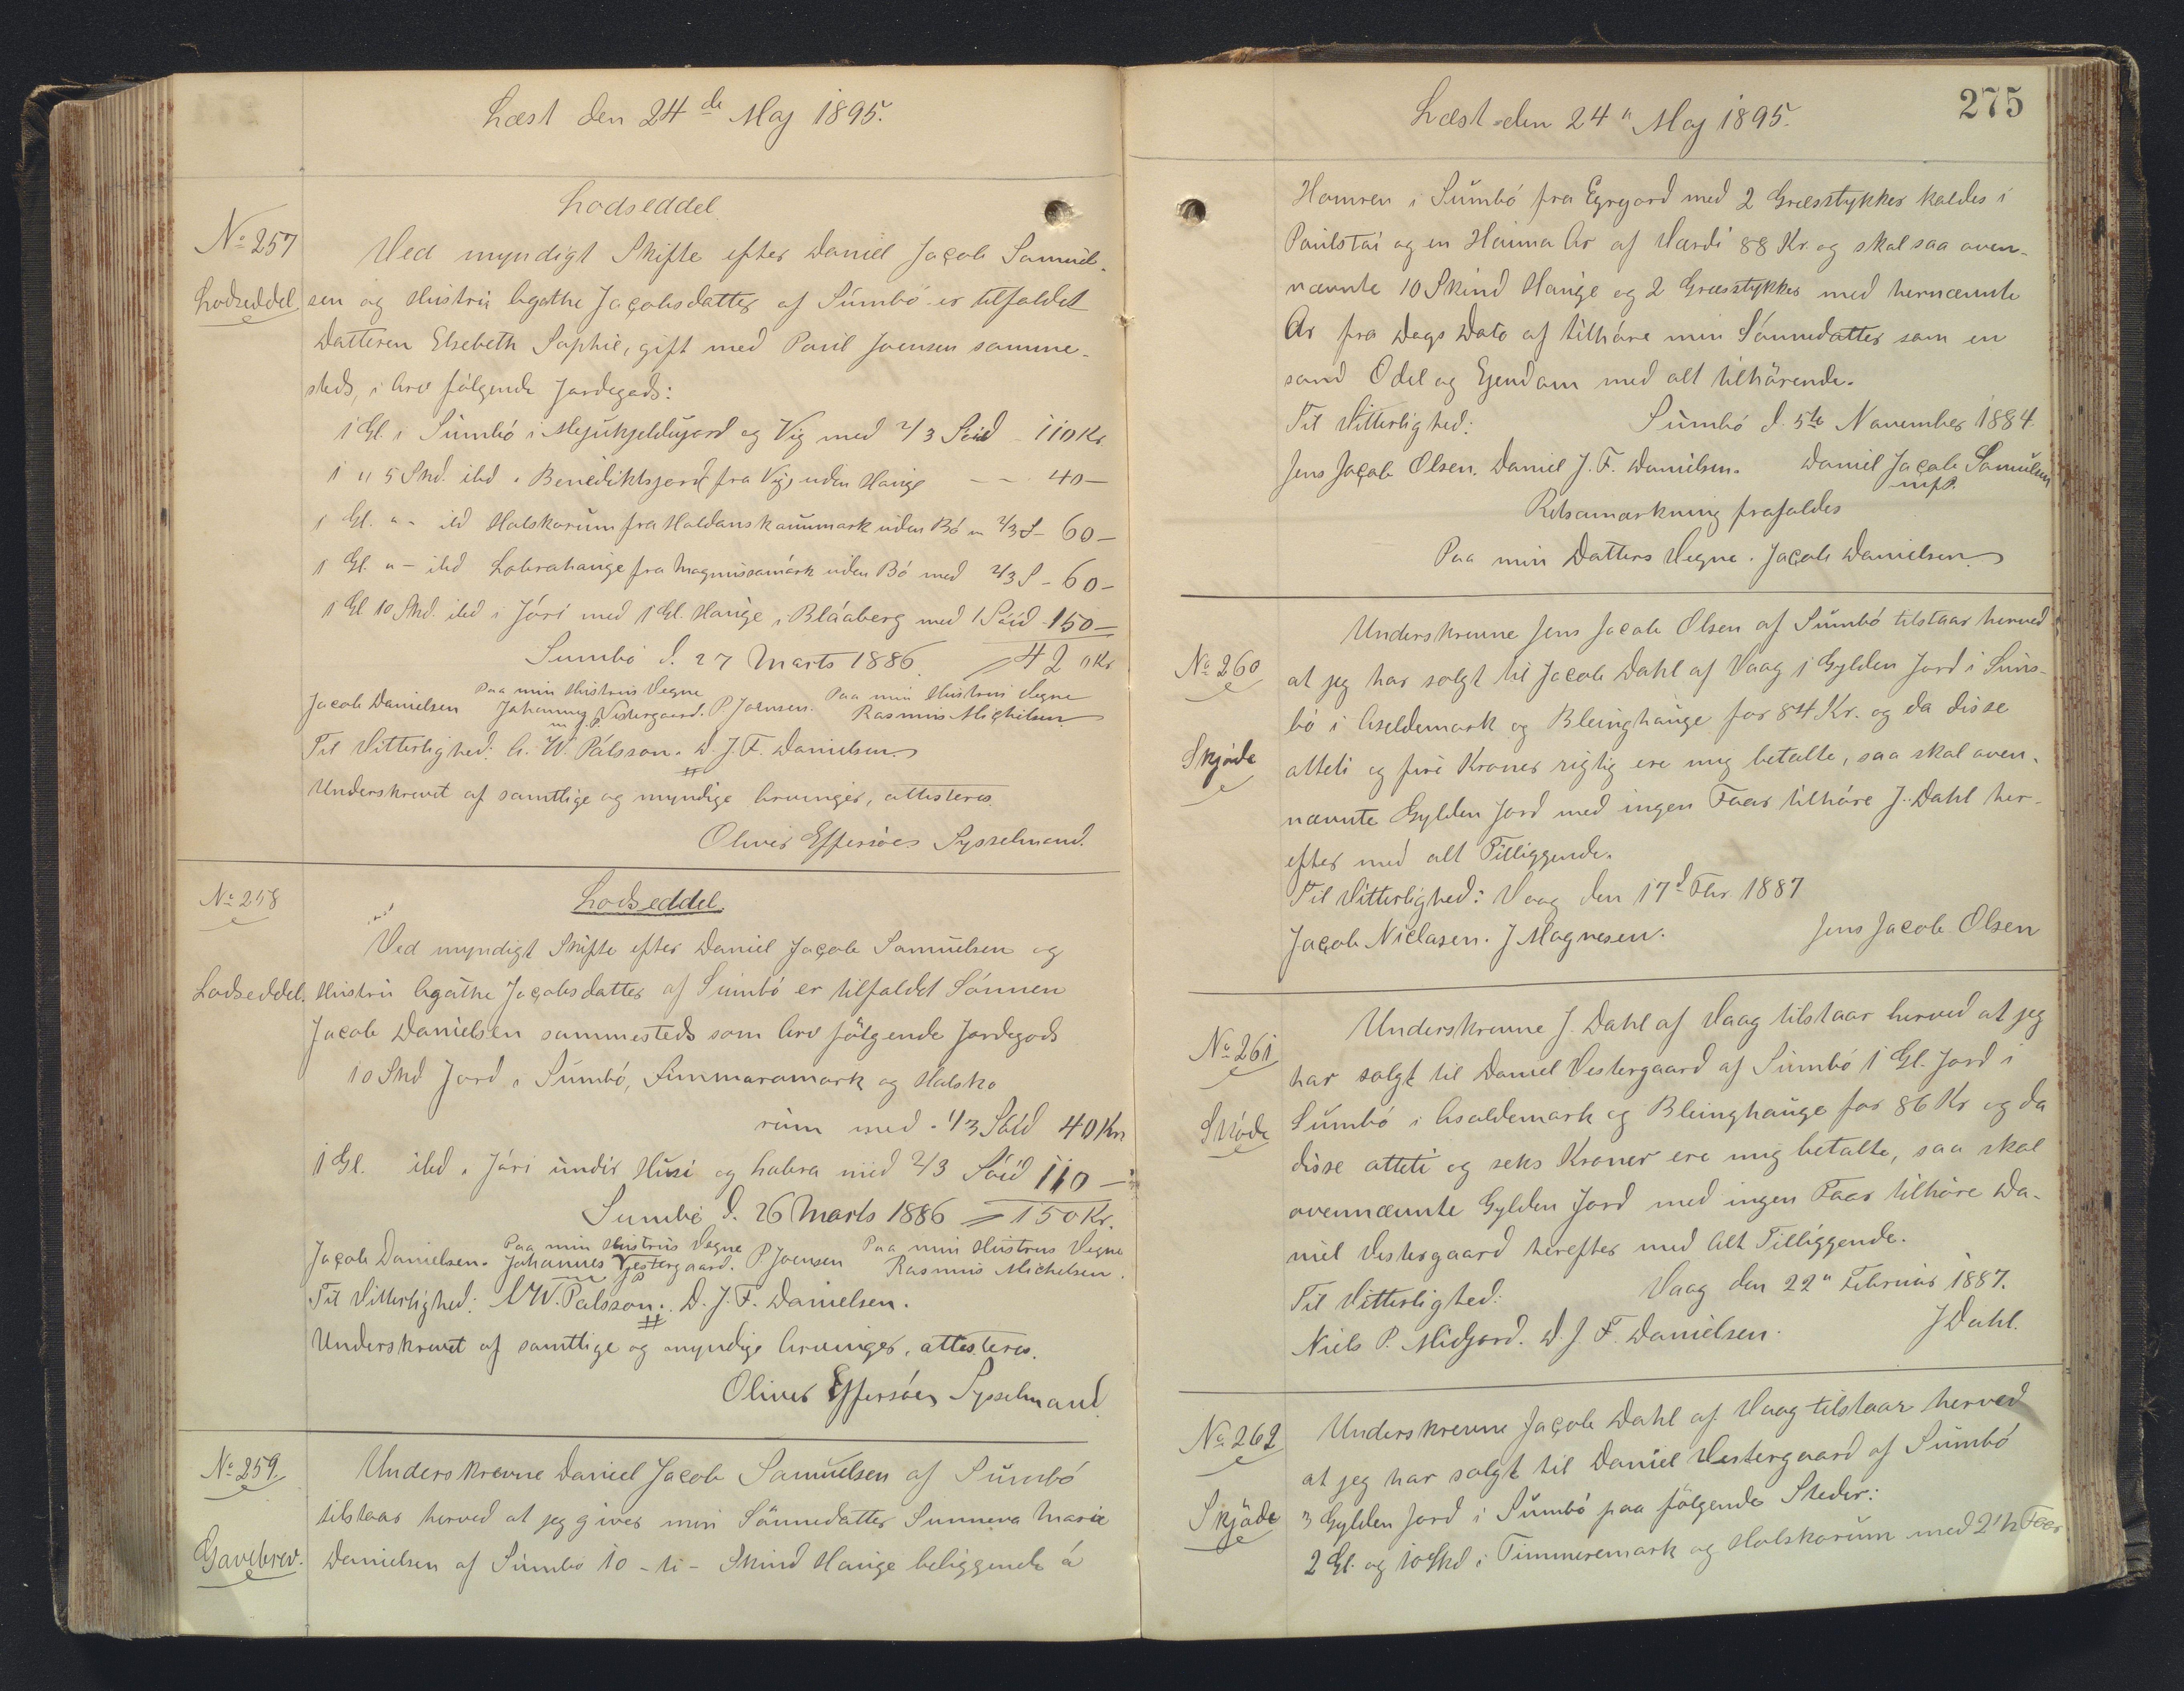 Læst den 24de Maj 1895.
Lodseddel.
No 257
Ved myndigt Skifte efter Daniel Jacob Samuel-
Lodseddel
sen og Hustru Agathe Jacobsdatter af Sumbö er tilfaldet
Datteren Elsebeth Sophie, gift med Poul Joensen samme-
steds, i Arv følgende Jordegods:
1 Gl. i Sumbö i Mejukjeldujord og Vig med 2/3 Soid - 110 Kr.
1 " 5 Skd. ibd. Benediktsjord fra Vig uden Hauge - - 40 -
1 Gl. " - ibd Halskorum fra Haldanskaummark uden Bö m 2/3 S - 60 -
1 Gl. " - ibd Labrahauge fra Magnussamark uden Bö med 2/3 S - 60 -
1 Gl 10 Skd. ibd i Jóri med 1 Gl. Hauge i Bláaberg med 1 Soid - 150 -
Sumbö d. 27 Marts 1886. 420 Kr
Paa min Hustrus Vegne Paa min Hustrus Vegne
Jacob Danielsen Johannes Vestergaard. P. Joensen. Rasmus Michelsen
m. f. P.
Til Vitterlighed: A. W. Pálsson. D. J. F. Danielsen.
Underskrevet af samtlige og myndige Arvinger, attesteres.
Oliver Effersöes Sysselmand.
No 258
Lodseddel.
Ved myndigt Skifte efter Daniel Jacob Samuelsen og
Lodseddel.
Hustru Agathe Jacobsdatter af Sumbö er tilfaldet Sönnen
Jacob Danielsen sammesteds som Arv følgende Jordegods
10 Skd Jord i Sumbö, Timmaramark og Halsko
rum med 1/3 Soid 40 Kr
1 Gl. ibd. Jóri undir Husi og Labra med 2/3 Soid 110 -
Sumbö d. 26 Marts 1886 150 Kr.
Paa min Hustrus Vegne Paa min Hustrus Vegne
Jacob Danielsen. Johannes Vestergaard. P. Joensen Rasmus Michelsen.
Til Vitterlighed: A W. Palsson. D. J. F. Danielsen.
Underskrevet af samtlige og myndige Arvinger, attesteres.
Oliver Effersöes Sysselmand.
No 259.
Underskrevne Daniel Jacob Samuelsen af Sumbö
tilstaar herved at jeg giver min Sönnedatter Sunneva Marie
Gavebrev.
Danielsen af Sumbö 10 - ti - Skind Hauge beliggende á
275
Læst den 24" Maj 1895.
Hamren i Sumbö fra Eyrgard med 2 Græsstykker kaldes i
Paulstai og en Hauma Ar af Værdi 88 Kr. og skal saa oven-
nævnte 10 Skind Hauge og 2 Græsstykker med hernævnte
Ar fra Dags Dato af tilhöre min Sönnedatter som en
sand Odel og Ejendom med alt tilhörende.
Til Vitterlighed: Sumbö d. 5te November 1884.
Jens Jacob Olsen. Daniel J. F. Danielsen. Daniel Jacob Samuelsen
m. f. P.
Retsanmærkning frafaldes
Paa min Datters Vegne. Jacob Danielsen.
Underskrevne Jens Jacob Olsen af Sumbö tilstaar herved
No 260
at jeg har solgt til Jacob Dahl af Vaag 1 Gylden Jord i Sum-
bö i Aseldemark og Bleinghauge for 84 Kr. og da disse
Skjöde
otteti og fire Kroner rigtig ere mig betalte, saa skal oven-
nævnte Gylden Jord med ingen Faar tilhöre J. Dahl her-
efter med alt Tilliggende.
Til Vitterlighed: Vaag den 17d Fbr. 1887
Jacob Niclasen. J Magnesen. Jens Jacob Olsen
Underskrevne J. Dahl af Vaag tilstaar herved at jeg
No 261
har solgt til Daniel Vestergaard af Sumbö 1 Gl. Jord i
Sköde
Sumbö i Asaldemark og Bleinghauge for 86 Kr og da
disse otteti og seks Kroner ere mig betalte, saa skal
ovennævnte Gylden Jord med ingen Faar tilhöre Da-
niel Vestergaard herefter med Alt Tilliggende.
Til Vitterlighed: Vaag den 22" Februar 1887.
Niels P. Midjord. D. J. F. Danielsen. J Dahl.
No 262
Underskrevne Jacob Dahl af Vaag tilstaar herved
at jeg har solgt til Daniel Vestergaard af Sumbö
Skjöde
3 Gylden Jord i Sumbö paa følgende Steder:
2 Gl. og 10 Skd i Timmeremark og Halskorum med 2 1/2 Faar